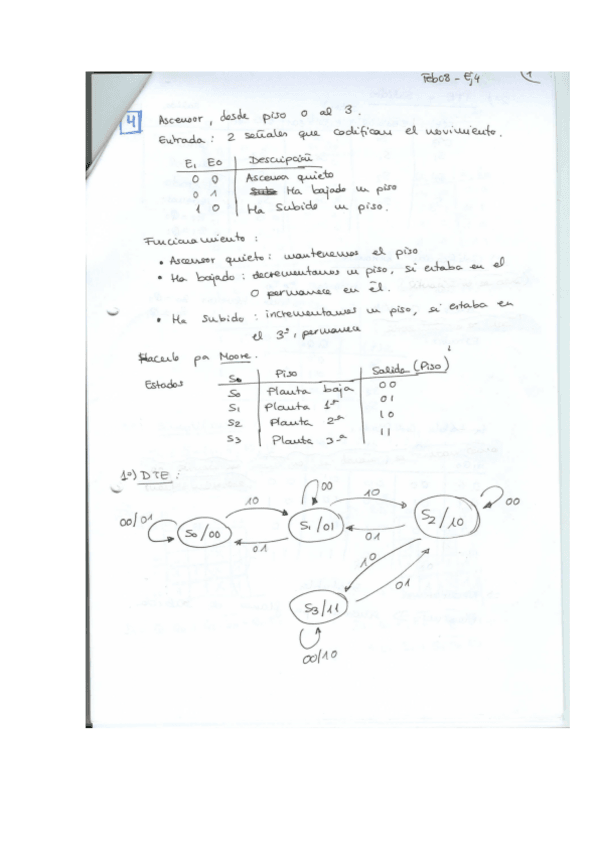 Feb08 - Ej4
1
4 Ascensor, desde piso 0 al 3.
Entrada: 2 señales que codifican el movimiento.
E1 E0 Descripción
0 0 Ascensor quieto
0 1 Ha bajado un piso
1 0 Ha Subido un piso.
Funcionamiento:
• Ascensor quieto: mantenemos el piso
• Ha bajado: decrementamos un piso, si estaba en el
0 permanece en él.
• Ha Subido: incrementamos un piso, si estaba en
el 3º, permanece
Hacerlo por Moore.
Estados S Piso Salida (Piso)
S0 Planta baja 00
S1 Planta 1ª 01
S2 Planta 2ª 10
S3 Planta 3ª 11
1º) DTE:
00
10
10
00
00/01
S0/00
S1/01
S2/10
01
01
10
01
S3/11
00/10